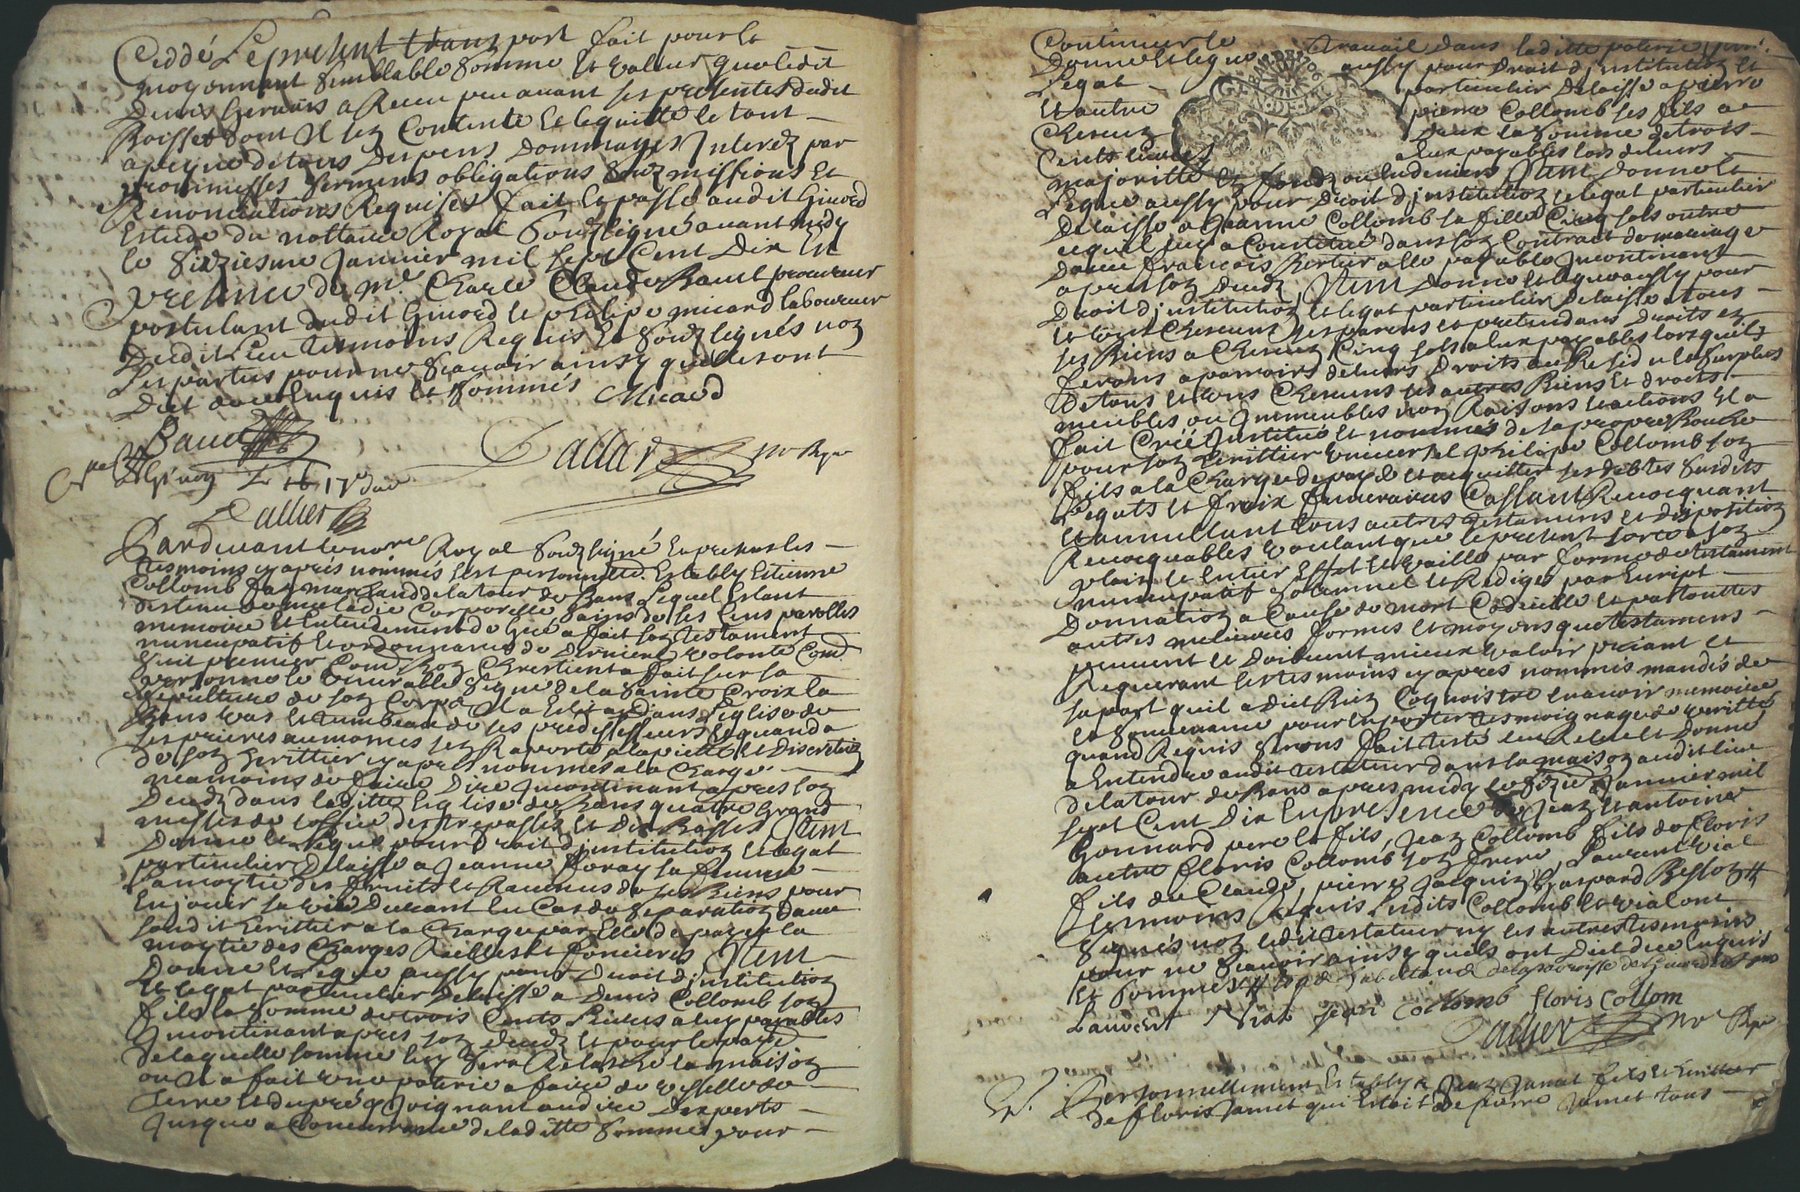 Ceddé Le present transport fait pour et
moyennant semblable somme et valeur que ledit
Denis Gervais a Receu peu avant ses presentes dudit
Boisset dont Il sen Contente et lequitte le tout
a peyne de tous despens dommages Interez par
promesses sermens obligations soubzmissions et
Renonciations Requises fait et passé audit
Estude du nottaire Royal soubzsigné avant midy
le seiziesme Janvier mil sept Cent Dix En
presence de Me Charle Claude Baud procureur
postulant dudit et philipe micard laboureur
dudit lieu tesmoins Requis et soubzsignés non
les parties pour ne scavoir ainsy quelles ont
Dict de ce Enquis et sommés
Micard
Baud
Dallier no Rye
Dallier
Pardevant le nore Royal soubzsigné et presents les
tesmoins cy apres nommés sest personnelle. Estably Estienne
Collomb marchand de la tour de Bans Lequel Estant
destenu de maladie Corporelle sains de ses sens parolles
memoire et Entendement de gré a fait son testament
nuncupatif et ordonnance de derniere volonté Comme
suit premier Comme bon Chrestient a fait sur sa
personne le venerable signe de la sainte Croix la
sepulture de son Corps Il a Esleu dans Leglise de
Bans vas et tumbeau de ses predecesseurs et quand a
ses prieres aumosnes sen Raporte a la pieté et Discretion
de son heritier cy apres nommé a la Charge
neamoins de faire dire Incontinant apres son
deceds dans laditte Esglise de Bans quatre grand
messes de loffice des trepassés et dix Basses Item
Donne et Legue pour droit dinstitution et legat
particulier delaisse a Jeanne foray sa femme
la moytié des fruits et Revenus de ses Biens pour
En jouir sa vie durant En Cas de separation davec
sondit heritier a la Charge par Elle de payer la
moytié des Charges Reelles et foncieres Item
Donne et Legue aussy pour droit dinstitution
et legat particulier delaisse a Denis Collomb son
fils la somme de trois Cents Livres a luy payables
Incontinant apres son deceds et pour le paye
de laquelle somme luy sera Relasché la maison
ou Il a fait une poterie a faire de vesselle de
Terre et du pré y Joignant au dire dexperts
Jusque a Concurrance de laditte somme pour
Continuer le travail dans laditte poterie Item
donne et legue aussy pour droit dinstitution et
Legat particulier delaisse a pierre
et autre pierre Collomb ses fils a
Chacun deux la somme de trois
Cents livres a eux payables lors de leurs
majorité en fonds ou en deniers Item donne et
Legue aussy pour droit dinstitution et legat particulier
delaisse a Jeanne Collomb sa fille Cinq sols outre
ce quil luy a Constitué dans son Contract de mariage
davec francois Bertier a elle payable Incontinant
apres son deceds Item donne et legue aussy pour
droit dinstitution et legat particulier delaisse a tous
et un Chacuns ses parens et pretendans droits en
ses Biens a Chacun Cinq sols a eux payables lors quils
feront aparoir de leurs droits au Residu et surplus
de tous et uns Chacuns ses autres Biens et droits
meubles ou Immeubles noms Raisons et actions Il a
fait Créé Institué et nommé de sa propre Bouche
pour son heritier universel philipe Collomb son
fils a la Charge de payer et acquitter ses debtes susdits
Legats et fraix funeraires Cassant Revoquant
et annullant tous autres testamens et disposition
Revocquables voulant que le present sorte a son
plain et Entier Effet et vaille par forme de testament
nuncupatif solemnel et Redigé par Escript
donnation a Cause de mort Codicille et par touttes
autres meilleures formes et moyens que testamens
peuvent et doibvent mieux valoir priant et
Requerant les tesmoins cy apres nommés mandés de
sa part quil a dict Bien Cognoistre en avoir memoire
et souvenance pour En porter tesmoignage de verité
quand Requis seront fait testé leu Releu et donné
a Entendre audit testateur dans sa maison audit lieu
de la tour de Bans apres midy le seize Janvier mil
sept Cent Dix En presence de Jean et antoine
Gonnard pere et fils, Jean Collomb fils de floris
autre floris Collomb son frere, Laurent Vial
fils de Claude, pierre Jacquin Gaspard Besson #
tesmoins Requis Lesdits Collomb et vial ont
signés non ledit testateur ny les autres tesmoins
pour ne scavoir ainsy quils ont Dict de ce Enquis
et sommés # tous habitans de la parroisse de
Laurent Vial Jean Collomb floris Collom
Dallier no Rye
Personnellement Estably Jean Jamet fils et heritier
de floris Jamet qui Estoit de pierre Jamet tous